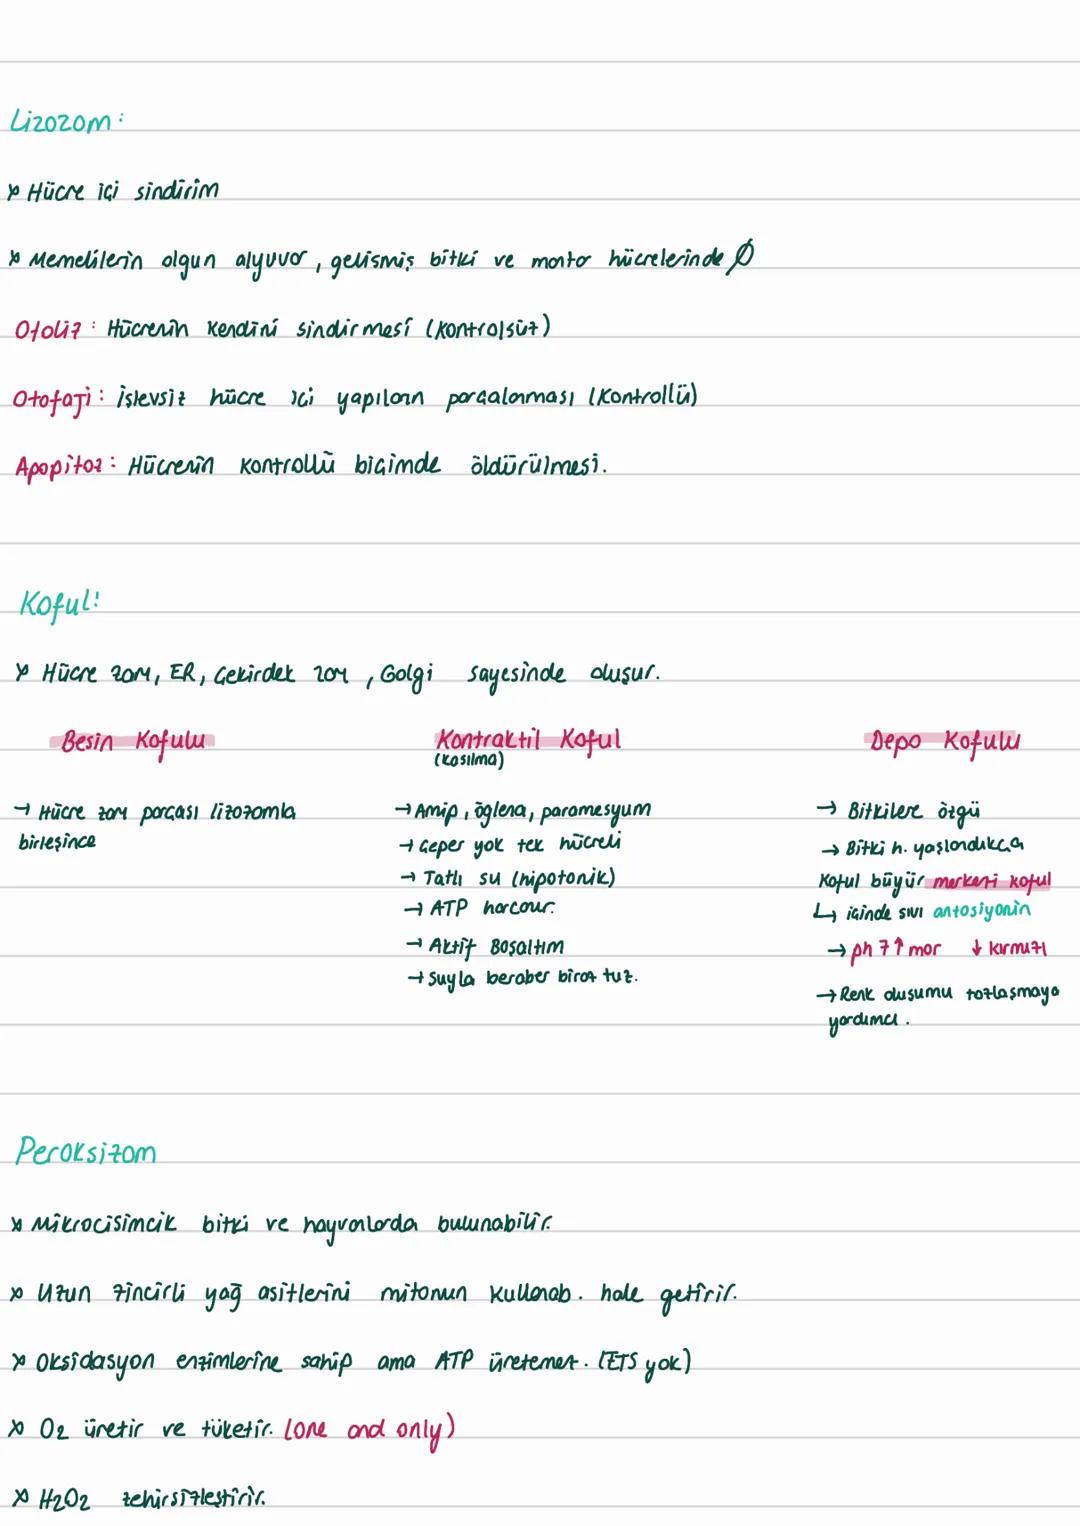 Lizozom:
Hücre içi sindirim
Memelilerin olgun alyuvar, gelişmiş bitki ve mantar hücrelerinde Ø
Otoliz: Hücrenin kendini sindirmesi (kontrolsüz)
Otofaji: işlevsiz hücre içi yapıların parçalanması (kontrollü)
Apopitoz: Hücrenin kontrollü biçimde öldürülmesi.
Koful:
Hücre zarı, ER, Çekirdek zarı, Golgi sayesinde oluşur.
Besin Kofulu
→ Hücre zarı parçası lizozomla
birleşince
Kontraktil Koful
(kasılma)
→ Amip, öglena, paramesyum
→ Çeper yok tek hücreli
→ Tatlı su (hipotonik)
→ ATP harcar.
→ Aktif Boşaltım
→ Suyla beraber biraz tuz.
Depo Kofulu
→ Bitkilere özgü
→ Bitki h. yaşlandıkça
Koful büyür merkezi koful
↳ içinde sıvı antosiyanin
→ ph 7↑ mor ↓ kırmızı
→ Renk oluşumu tozlaşmaya
yardımcı.
Peroksizom
Mikrocisimcik bitki ve hayvanlarda bulunabilir.
Uzun zincirli yağ asitlerini mitonun kullanab. hale getirir.
Oksidasyon enzimlerine sahip ama ATP üretemez. (ETS yok)
O2 üretir ve tüketir. (one and only)
H2O2 zehirsizleştirir.